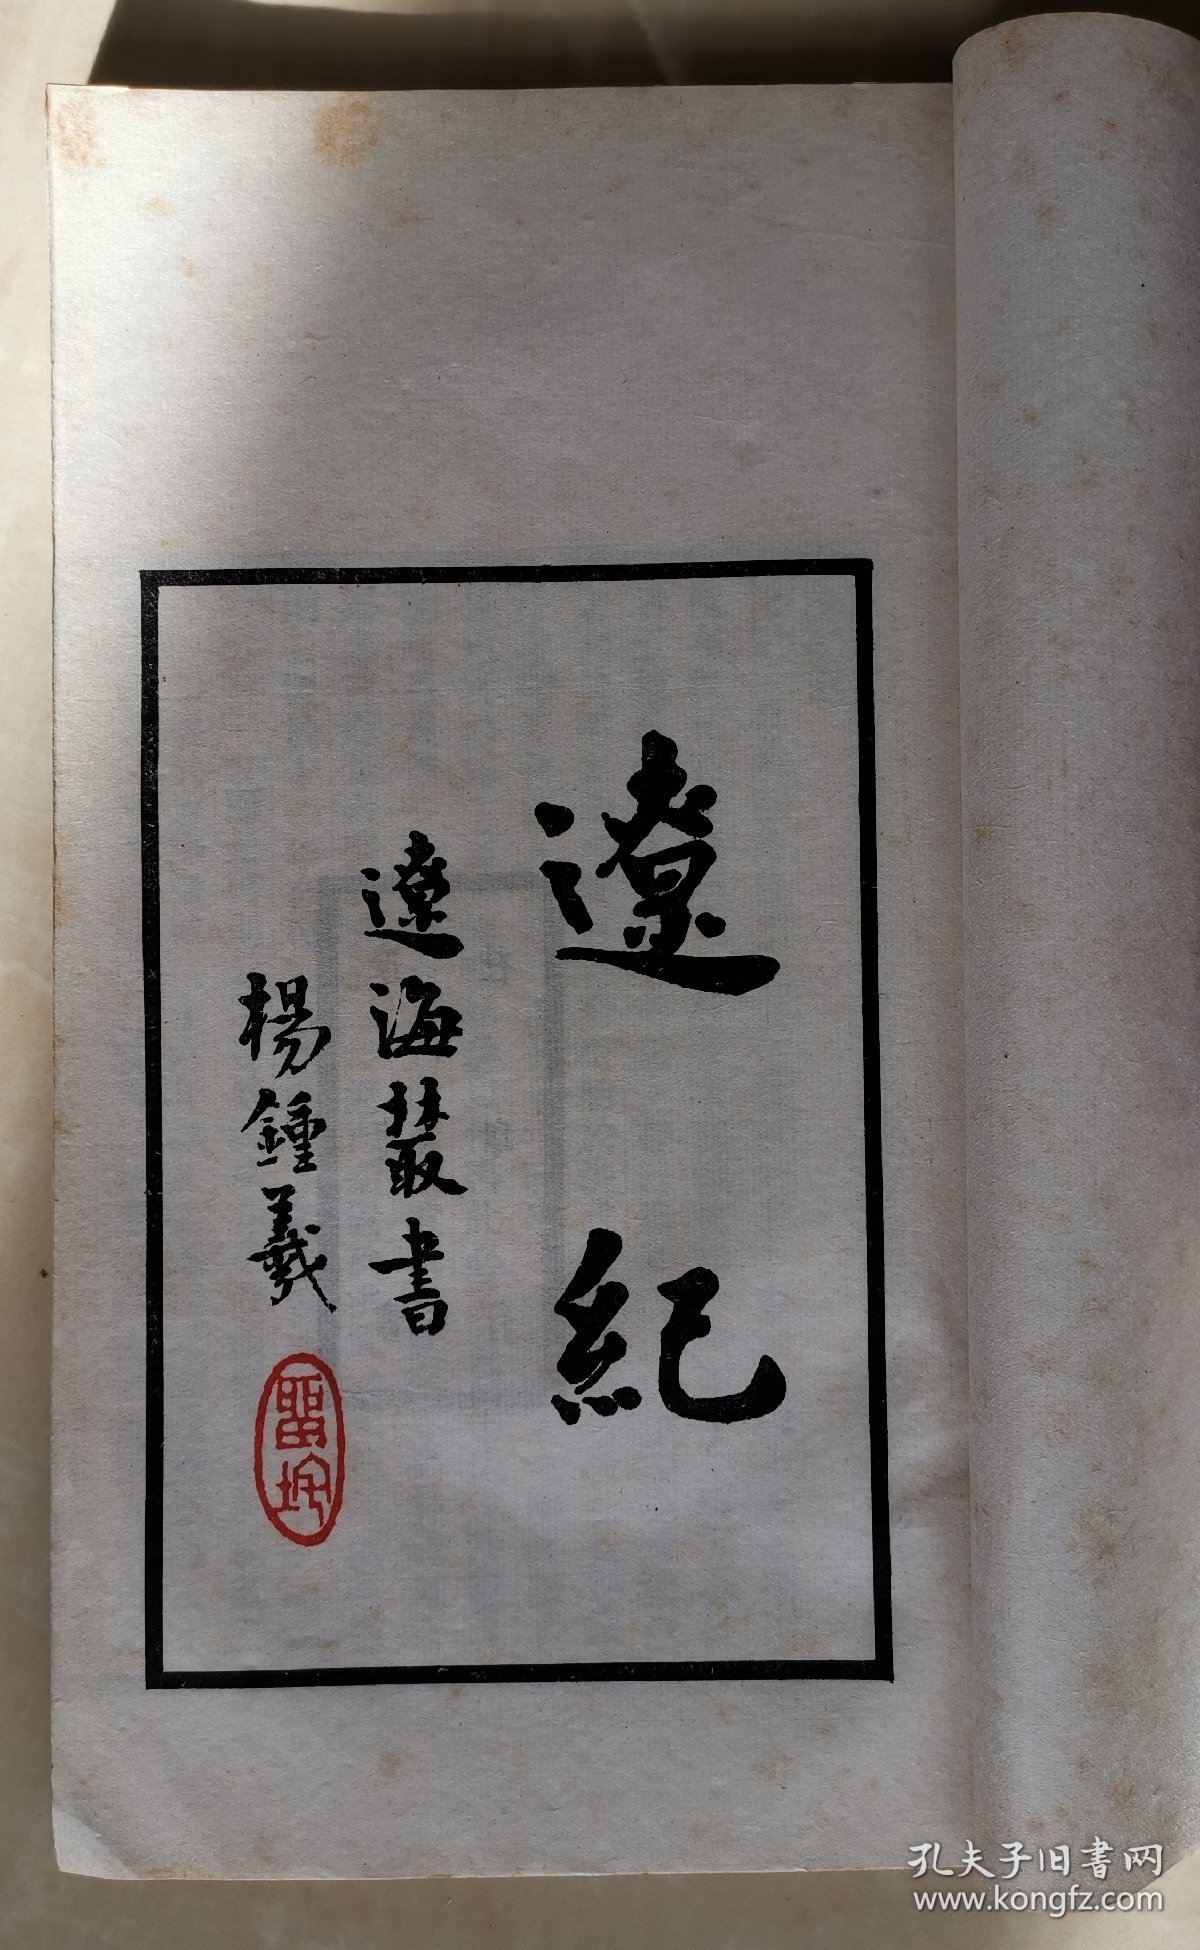 遼紀
遼海叢書
楊鍾羲
留垞
孔夫子旧書网
www.kongfz.com